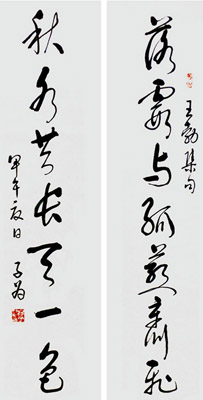 落霞与孤鹜齐飞
王勃集句
秋水共长天一色
甲午夏日